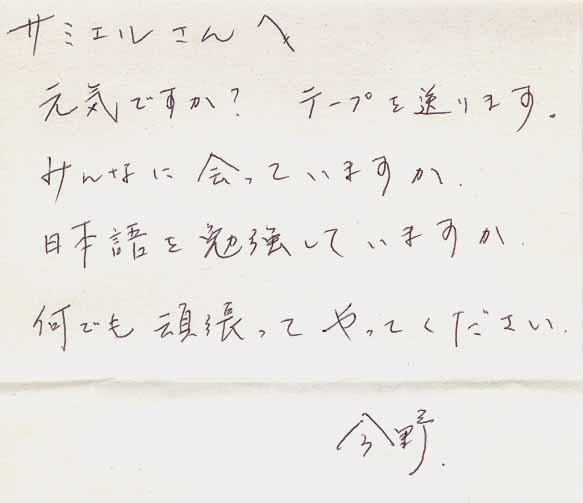 サミエルさんへ
元気ですか? テープを送ります。
みんなに会っていますか.
日本語を勉強していますか.
何でも頑張ってやってください.
今野.